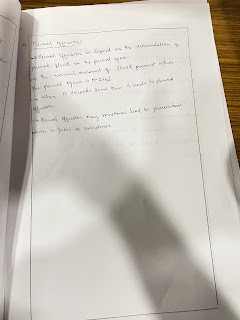 Pleural effusion:
→ Pleural effusion is defined as the accumulation of
pleural fluid in the pleural space.
→ The normal amount of fluid present within
the pleural space is
→ When it exceeds more than it leads to pleural
effusion.
→ Pleural effusion may sometimes lead to pneumonia
which is fatal at sometimes.